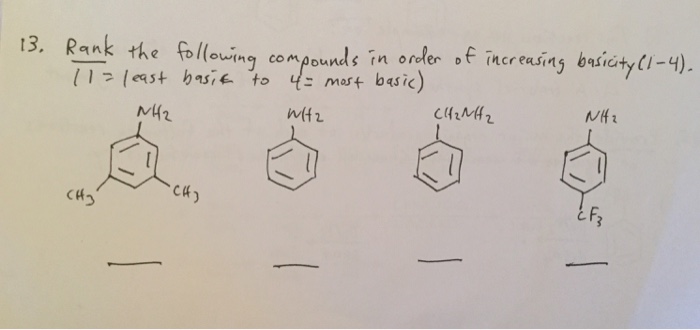 13. Rank the following compounds in order of increasing basicity (1-4).
(1 = least basic to 4 = most basic)
NH2 NH2 CH2NH2 NH2
CH3 CH3
CF3